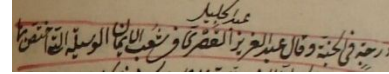 عبد الجليل
درجة فى الجنة وقال عبد العزيز القصرى فى شعب الايمان الوسيلة التى